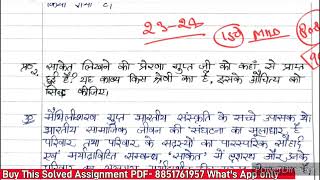 23-24
प्र० साकेत लिखने की प्रेरणा गुप्त जी को कहाँ से प्राप्त
2. हुई है? यह काव्य किस श्रेणी का है, इसके औचित्य को
सिद्ध कीजिए।
उ० मैथिलीशरण गुप्त भारतीय संस्कृति के सच्चे उपासक थे।
भारतीय सामाजिक जीवन की संघटना का मूलाधार है
परिवार तथा परिवार के सदस्यों का पारस्परिक सौहार्द
एवं मर्यादाविहित सम्बन्ध 'साकेत' में दशरथ और उनके
Buy This Solved Assignment PDF- 8851761957 What's App Only